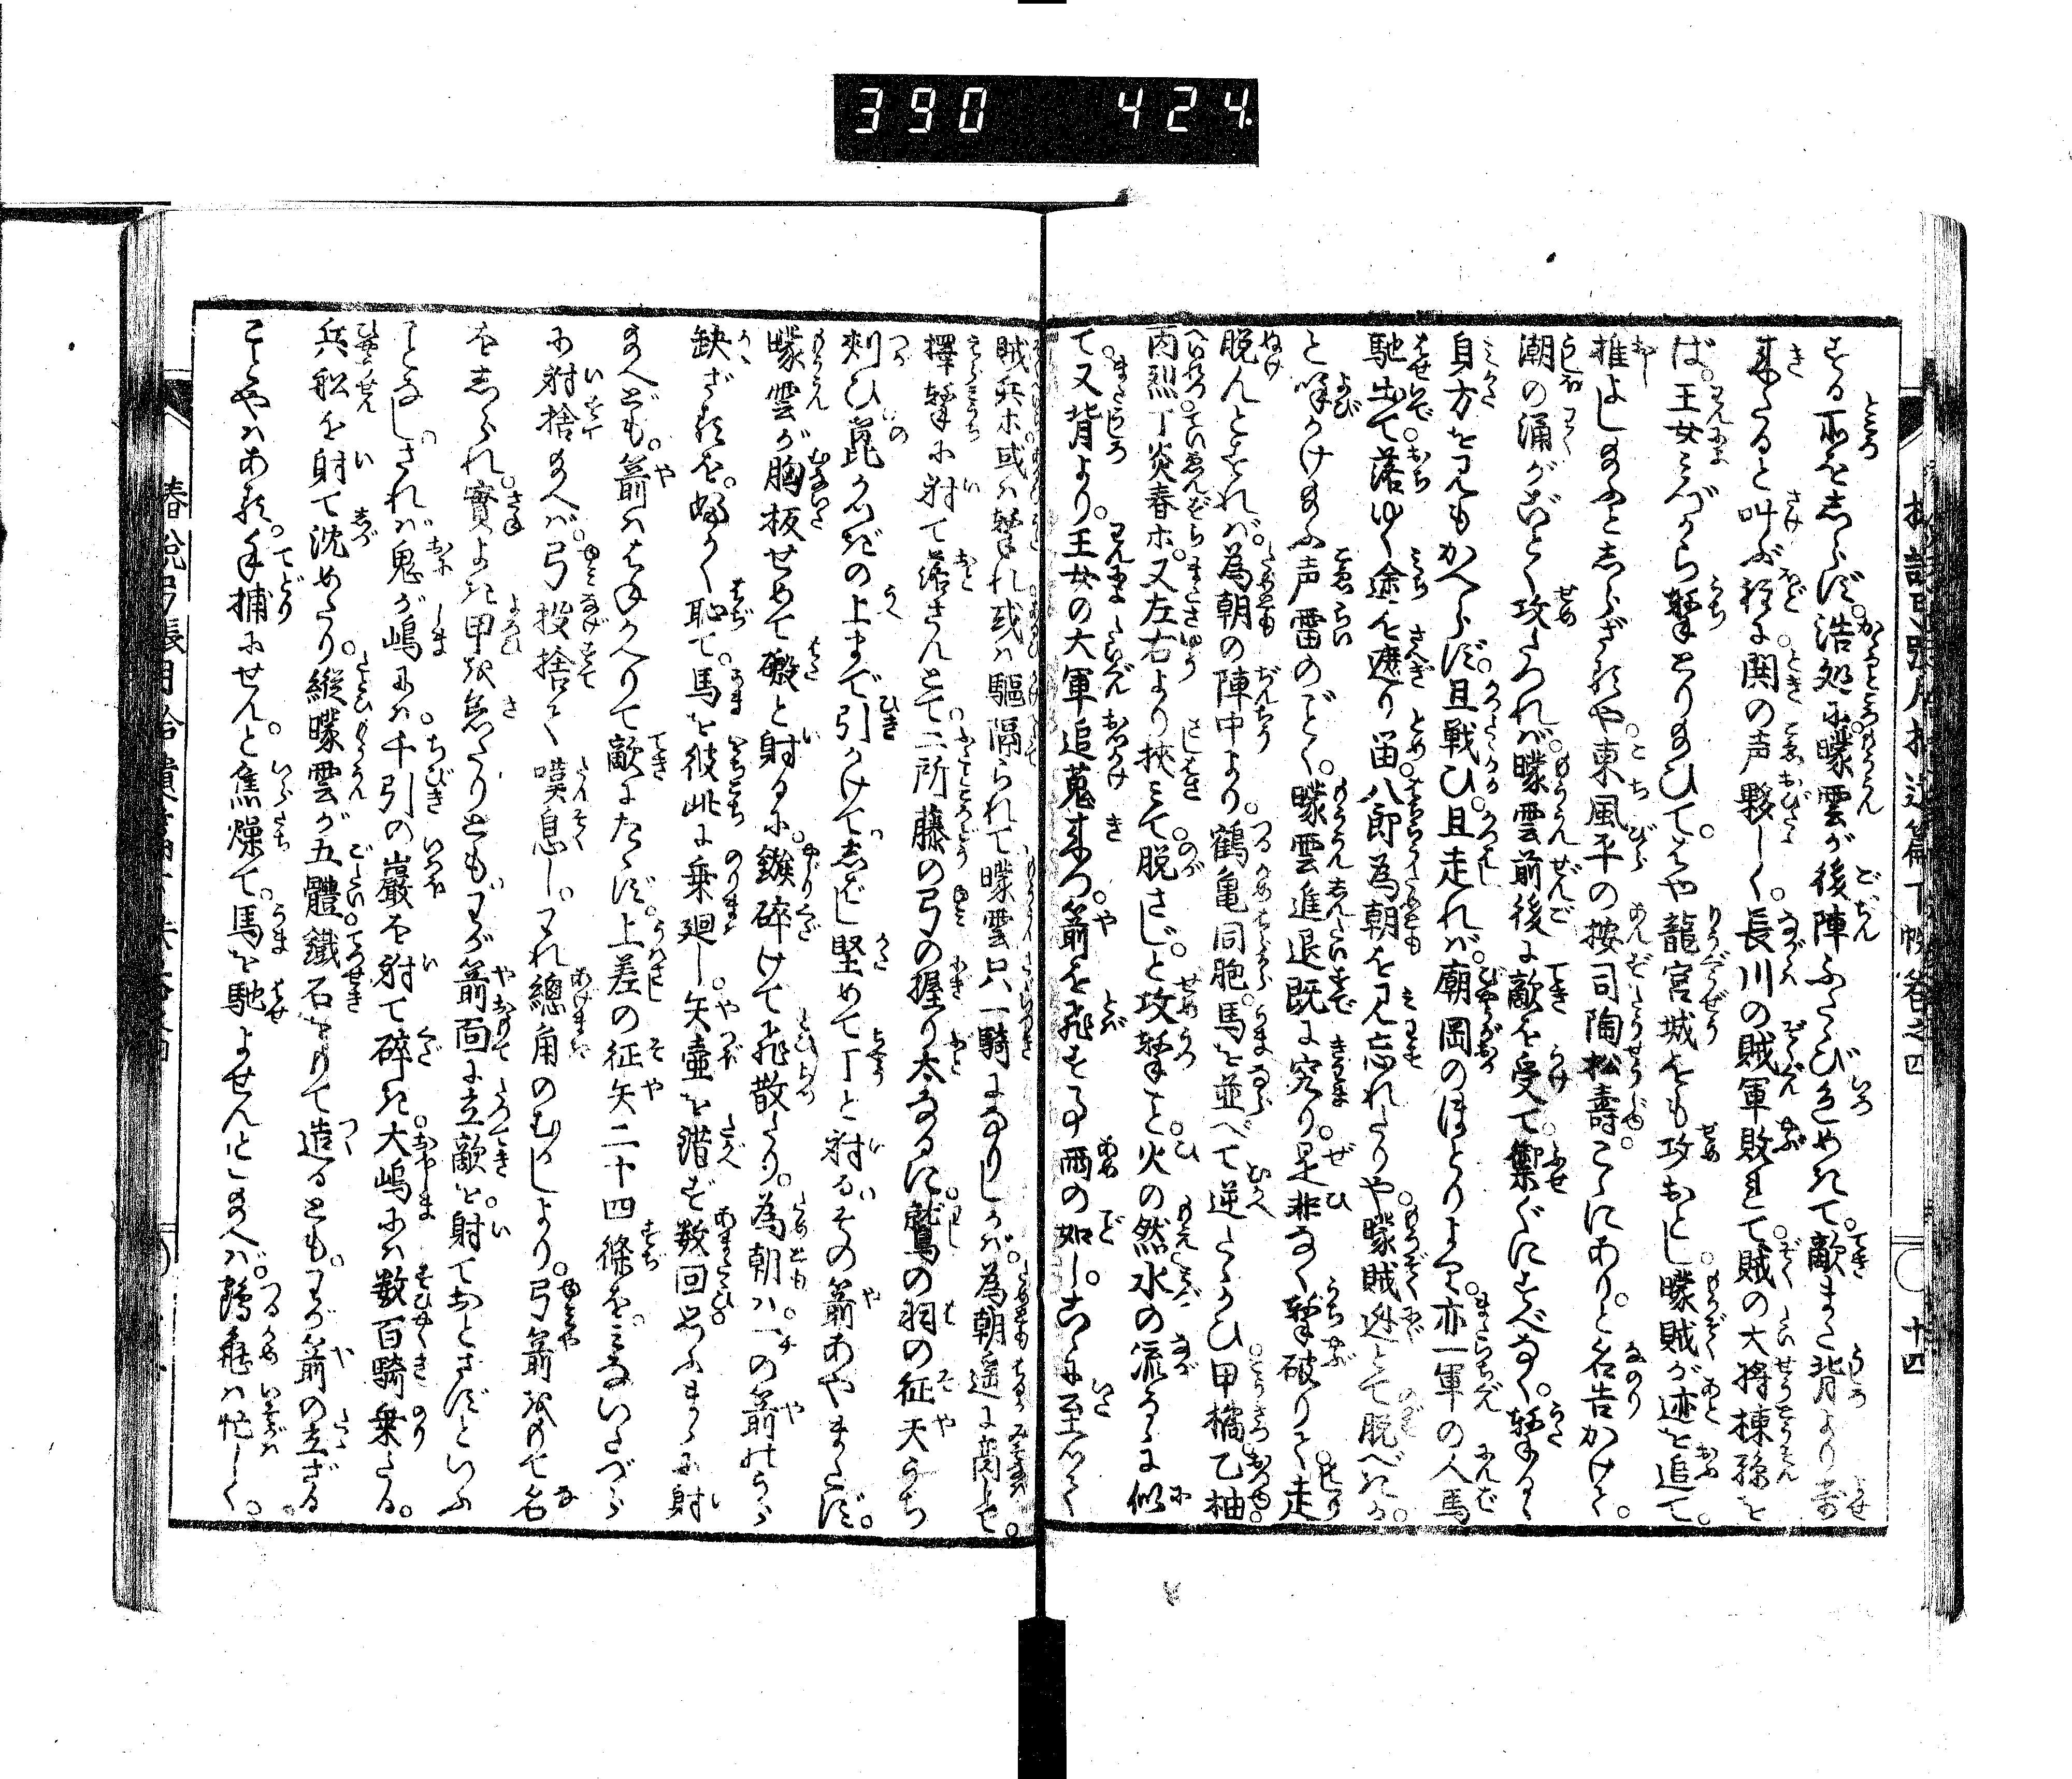 390 424
する所をしらず。浩処に矇雲が後陣ふたゝび色めきて。敵また背より寄
来たると叫ぶ程に鬨の声夥しく。長川の賊軍敗れて。賊の大将棟孫を
ば。王女みづから撃とり給ひて。はや龍宮城をも攻おとし。矇賊が迹を追て。
推よし給ふとしらざるや。東風平の按司陶松壽。こゝにあり。と名告かけて。
潮の涌がごとく攻たつれば。矇雲前後に敵を受て。禦ぐにすべなく。撃るゝ
身方を見もかへらず。且戦ひ。且走れば。廟岡のほとりより。亦一軍の人馬
馳出て。落ゆく途を遮り留。八郎為朝を見忘れたりや。矇賊迯とて脱べきか。
と呼かけ給ふ声雷のごとく。矇雲進退既に究り。是非なく撃破りて。走
脱んとすれば。為朝の陣中より。鶴亀同胞。馬を並べて逆たゝかひ。甲橘乙柚。
丙烈丁炎春ホ。又左右より挾みて。脱さじ。と攻撃こと。火の然水の流るゝに似
て。又背より。王女の大軍追蒐来つ。箭を飛する事雨の如し。こゝに至りて
賊兵ホ或は撃れ。或は驅隔られて。矇雲只一騎になりしかば。為朝遥に高ませ。
擇撃に射て落さんとて。二所藤の弓の握り太なるに。鷲の羽の征矢うち
刺ひ。箆かつぎの上まで引かけて。しばし堅めて丁と射る。その箭あやまたず。
矇雲が胸板せめて礅と射るに。鏃碎けて飛散たり。為朝は一の箭のうら
缺ざるを。妬く恥て。馬を彼此に乗廻し。矢壷を潜ず数回。思ふまゝに射
給へども。箭ははねかへりて敵にたゝず。上差の征矢二十四條を。みないたづら
に射捨給へば。弓投捨て嘆息し。われ總角のむかしより。弓箭をもて名
をしられ。實よき甲を急たりとも。わが箭面に立敵を。射ておとさずといふ
ことなし。されば鬼が嶋には。千引の巖を射て碎き。大嶋には数百騎乗たる
兵舩を射て沈めたり。縦矇雲が五體。鐵石をもて造るとも。わが箭の立ざる
ことやはある。手捕にせん。と焦燥て。馬を馳よせんとし給へば。鶴亀は忙しく。
椿説弓張月拾遺
十四